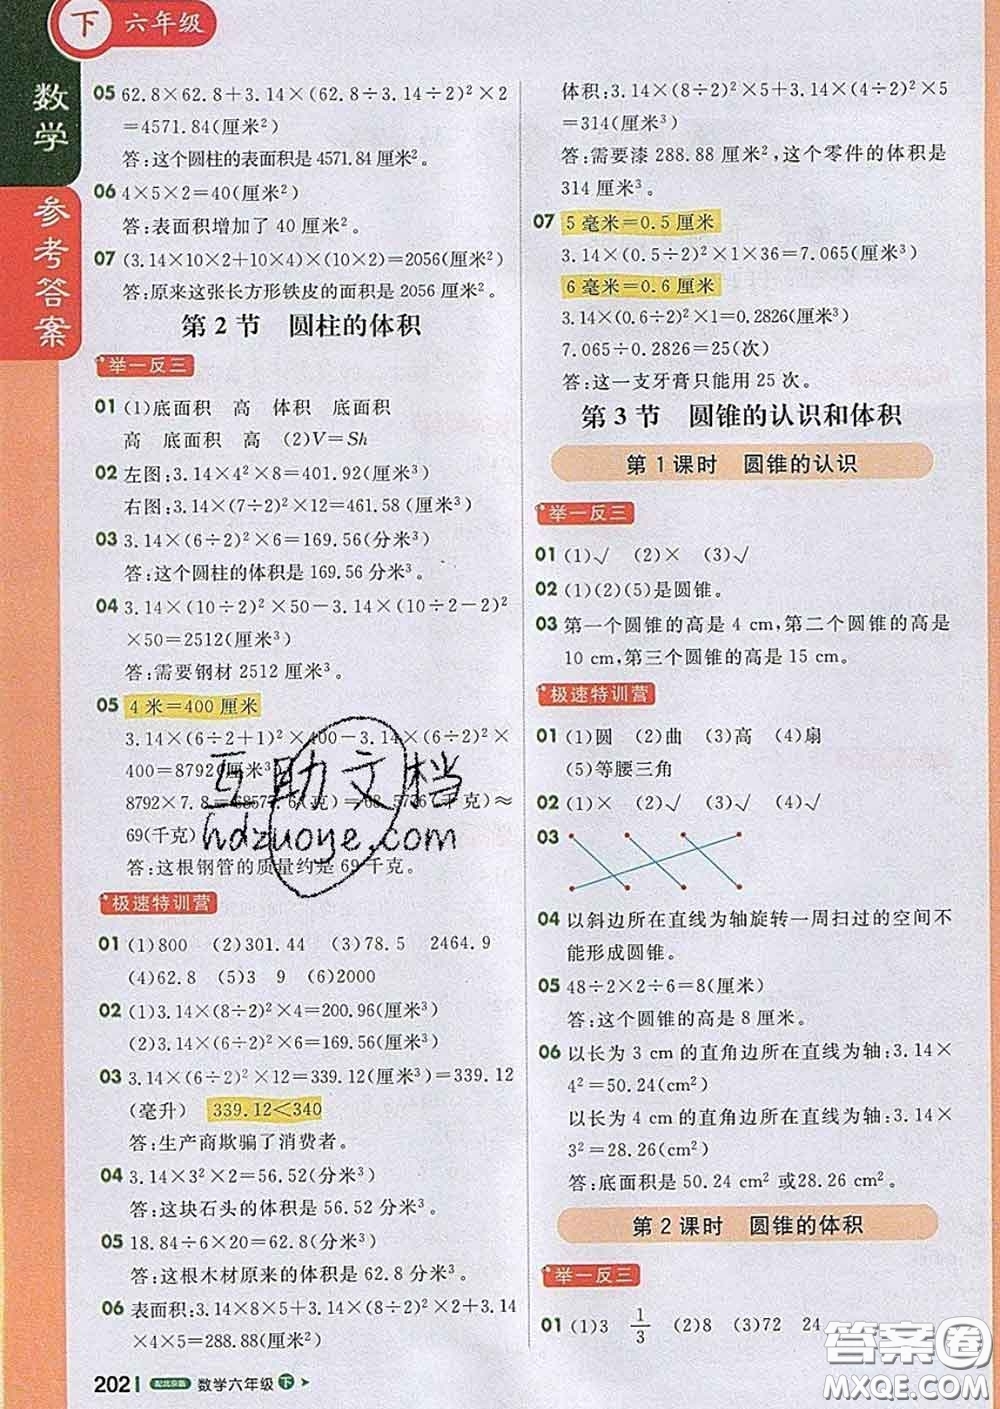 下 六年级
数学
参考答案
05 62.8×62.8+3.14×(62.8÷3.14÷2)²×2
=4571.84(厘米²)
答:这个圆柱的表面积是4571.84厘米²。
06 4×5×2=40(厘米²)
答:表面积增加了40厘米²。
07 (3.14×10×2+10×4)×(10×2)=2056(厘米²)
答:原来这张长方形铁皮的面积是2056厘米²。
第2节 圆柱的体积
举一反三
01 (1)底面积 高 体积 底面积
高 底面积 高 (2)V=Sh
02 左图:3.14×4²×8=401.92(厘米³)
右图:3.14×(7÷2)²×12=461.58(厘米³)
03 3.14×(6÷2)²×6=169.56(分米³)
答:这个圆柱的体积是169.56分米³。
04 3.14×(10÷2)²×50-3.14×(10÷2-2)²
×50=2512(厘米³)
答:需要钢材2512厘米³。
05 4米=400厘米
3.14×(6÷2+1)²×400-3.14×(6÷2)²×
400=8792(厘米³)
8792×7.8=68577.6(克)=68.5776(千克)≈
69(千克)
答:这根钢管的质量约是69千克。
极速特训营
01 (1)800 (2)301.44 (3)78.5 2464.9
(4)62.8 (5)3 9 (6)2000
02 (1)3.14×(8÷2)²×4=200.96(厘米³)
(2)3.14×(6÷2)²×6=169.56(厘米³)
03 3.14×(6÷2)²×12=339.12(厘米³)=339.12
(毫升) 339.12<340
答:生产商欺骗了消费者。
04 3.14×3²×2=56.52(分米³)
答:这块石头的体积是56.52分米³。
05 18.84÷6×20=62.8(分米³)
答:这根木材原来的体积是62.8分米³。
06 表面积:3.14×8×5+3.14×(8÷2)²×2+3.14
×4×5=288.88(厘米²)
202 配北京版 数学六年级 下
体积:3.14×(8÷2)²×5+3.14×(4÷2)²×5
=314(厘米³)
答:需要漆288.88厘米²,这个零件的体积是
314厘米³。
07 5毫米=0.5厘米
3.14×(0.5÷2)²×1×36=7.065(厘米³)
6毫米=0.6厘米
3.14×(0.6÷2)²×1=0.2826(厘米³)
7.065÷0.2826=25(次)
答:这一支牙膏只能用25次。
第3节 圆锥的认识和体积
第1课时 圆锥的认识
举一反三
01 (1)√ (2)× (3)√
02 (1)(2)(5)是圆锥。
03 第一个圆锥的高是4 cm,第二个圆锥的高是
10 cm,第三个圆锥的高是15 cm。
极速特训营
01 (1)圆 (2)曲 (3)高 (4)扇
(5)等腰三角
02 (1)× (2)√ (3)√ (4)√
03
04 以斜边所在直线为轴旋转一周扫过的空间不
能形成圆锥。
05 48÷2×2÷6=8(厘米)
答:这个圆锥的高是8厘米。
06 以长为3 cm的直角边所在直线为轴:3.14×
4²=50.24(cm²)
以长为4 cm的直角边所在直线为轴:3.14×
3²=28.26(cm²)
答:底面积是50.24 cm²或28.26 cm²。
第2课时 圆锥的体积
举一反三
01 (1)3 1/3 (2)8 (3)72 24
互助文档
hdzuoye.com
答案圈
MXQE.COM